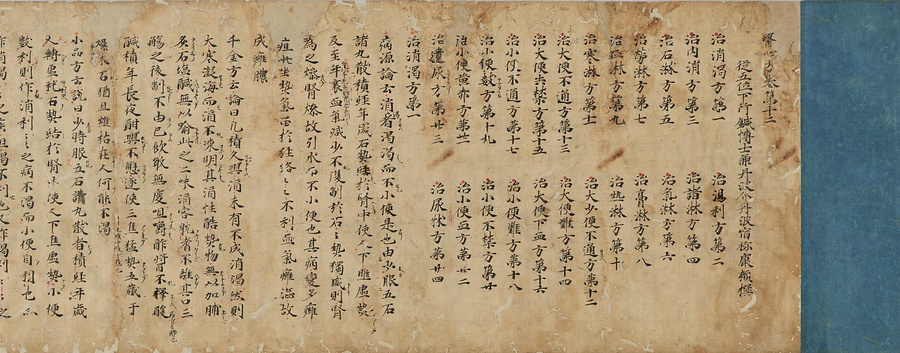 醫心方卷第十二
從五位下行鍼博士兼丹波介丹波宿祢康頼撰
治消渴方第一　治渴利方第二
治内消方第三　治諸淋方第四
治石淋方第五　治氣淋方第六
治勞淋方第七　治膏淋方第八
治血淋方第九　治熱淋方第十
治寒淋方第十一　治大小便不通方第十二
治大便不通方第十三　治大便難方第十四
治大便失禁方第十五　治大便下血方第十六
治小便不通方第十七　治小便難方第十八
治小便數方第十九　治小便不禁方第廿
治小便黄赤方第廿一　治小便血方第廿二
治遺尿方第廿三　治尿牀方第廿四
治消渴方第一
病源論云消者渴而不小便是也由少服五石
諸丸散積經年歲石勢結於腎中使人下膲虛熱
及至年衰血氣減少不復制於石石勢獨盛則腎
為之燥腎燥故引水而不小便也其病變多癰
疽此坐熱氣留於經絡絡不利血氣癰澁故
成癰膿
千金方云論曰凡積久飲酒未有不成消渴然則
大寒凝海而酒不凍明其酒性酷熱物無以加脯
炙鹽鹹此之二味酒客耽嗜不離其口三
觴之後制不由己飲噉無度咀嚼鮓醬不釋酸
鹹積年長夜酣興不懈遂使三焦猛熱五藏干
燥木石猶且燋枯在人何能不渴
小品方云說曰少時服五石諸丸散者積經年歲
人轉虛耗石勢結於腎使人下焦虛熱小便
數利則作消利消利之病不渴而小便自利也亦
作消渴消渴之疾但渴不利也又作渴利